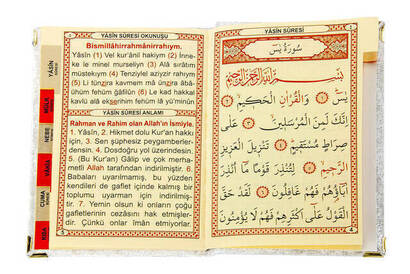 YÂSİN SÛRESİ OKUNUŞU
Bismillâhirrahmânirrahıym.
Yâsîn (1) Vel kur'ânil hakiym (2) İnne-
ke le minel murseliyn (3) Alâ sırâtım
müstekıym (4) Tenziylel aziyzir rahıym
(5) Li tünzira kavmen mâ ünzira âbâ-
ühüm fehüm ğâfilûn (6) Le kad hakkal
kavlü alâ ekserihim fehüm lâ yü'minûn
YÂSÎN SÛRESİ ANLAMI
Rahman ve Rahim olan Allah'ın İsmiyle.
1. Yâsîn, 2. Hikmet dolu Kur'an hakkı
için, 3. Sen şüphesiz peygamberler-
densin. 4. Dosdoğru yol üzerindesin.
5. (Bu Kur'an) Gâlip ve çok merha-
metli Allah tarafından indirilmiştir. 6.
Babaları uyarılmamış, bu yüzden
kendileri de gaflet içinde kalmış bir
toplumu uyarman için indirilmiş-
tir. 7. Yemin olsun ki onların çoğu
gafletlerinin cezasını hak etmişler-
dir. Çünkü onlar iman etmiyorlar.
YÂSİN
MÜLK
NEBE
VÂKIA
CUMA
KISA
YÂSİN SÛRESİ
سُورَةُ يٰسٓ
بِسْمِ اللّٰهِ الرَّحْمٰنِ الرَّحِيمِ
يٰسٓ ١ وَالْقُرْاٰنِ الْحَكِيمِ ٢
اِنَّكَ لَمِنَ الْمُرْسَلِينَ ٣ عَلٰى
صِرَاطٍ مُسْتَقِيمٍ ٤ تَنْزِيلَ الْعَزِيزِ
الرَّحِيمِ ٥ لِتُنْذِرَ قَوْمًا مَٓا اُنْذِرَ
اٰبَٓاؤُ۬هُمْ فَهُمْ غَافِلُونَ ٦ لَقَدْ حَقَّ
الْقَوْلُ عَلٰٓى اَكْثَرِهِمْ فَهُمْ لَا يُؤْمِنُونَ